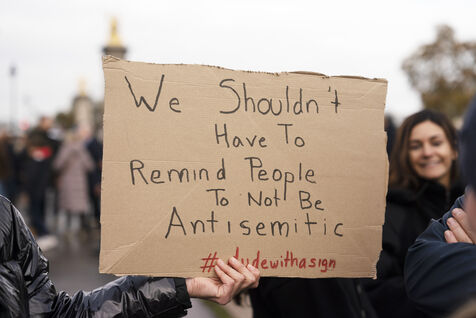 We Shouldn't
Have To
Remind People
To Not Be
Antisemitic
#dudewithasign